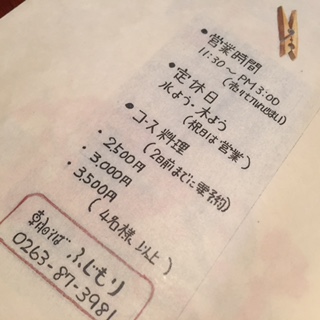 • 営業時間
11:30～PM3:00
(売りきれ次第終い)
• 定休日
水よう・木よう
(祝日は営業)
• コース料理
(2日前までに要予約)
・2,500円
・3,000円
・3,500円
(4名様以上)
朝日そば ふじもり
0263-87-3981